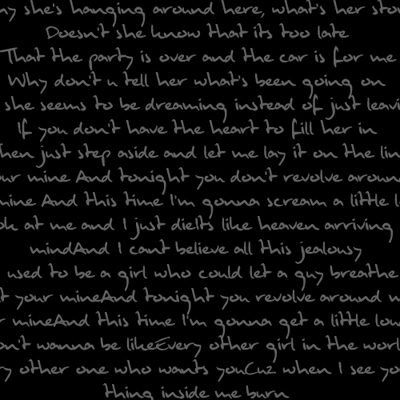 she's hanging around here, what's her
Doesn't she know that its too late
That the party is over and the car is for me
Why don't u tell her what's been going on
she seems to be dreaming instead of just
If you don't have the heart to fill her in
just step aside and let me lay it on the
mine And tonight you don't revolve
mine And this time I'm gonna scream a little
at me and I just dielts like heaven arriving
mindAnd I cant believe all this jealousy
used to be a girl who could let a guy breathe
your mineAnd tonight you revolve around
mineAnd this time I'm gonna get a little
wanna be likeEvery other girl in the
other one who wants youCuz when I see
thing inside me burn